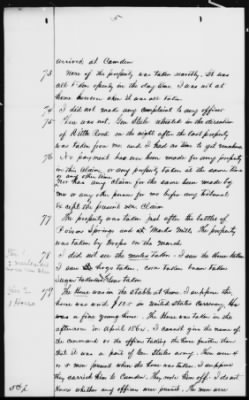 5
arrived at Camden
73 None of the property was taken secretly. It was
all taken openly in the day time. I was not at
home however when it was all taken.
74 I did not make any complaint to any officer
75 There was not. Gen Steele retreated in the direction
of Little Rock on the night after the last property
was taken from me and I had no time to get vouchers
76 No payment has ever been made for any property
in this claim, or any property taken at the same time
or any other time.
Nor has any claim for the same been made by
me or any other person for me before any tribunal
except the present one Claim
77 The property was taken just after the battles of
Poison Springs and at Marks Mill. The property
was taken by troops on the march
78 I did not see the mules taken - I saw the horse taken
I saw the hogs taken, corn taken bacon taken
sugar taken
79 The horse was in the stable at home I suppose the
horse was worth $125 in United States currency. He
was a fine young horse. The Horse was taken in the
afternoon in April 1864. I cannot give the name of
the command or the officer taking the horse further than
that it was a part of Gen Steeles army. There were 4
or 5 men present when the horse was taken. I suppose
they carried him to Camden. They rode him off. I do not
know whether any officers were present. The men were